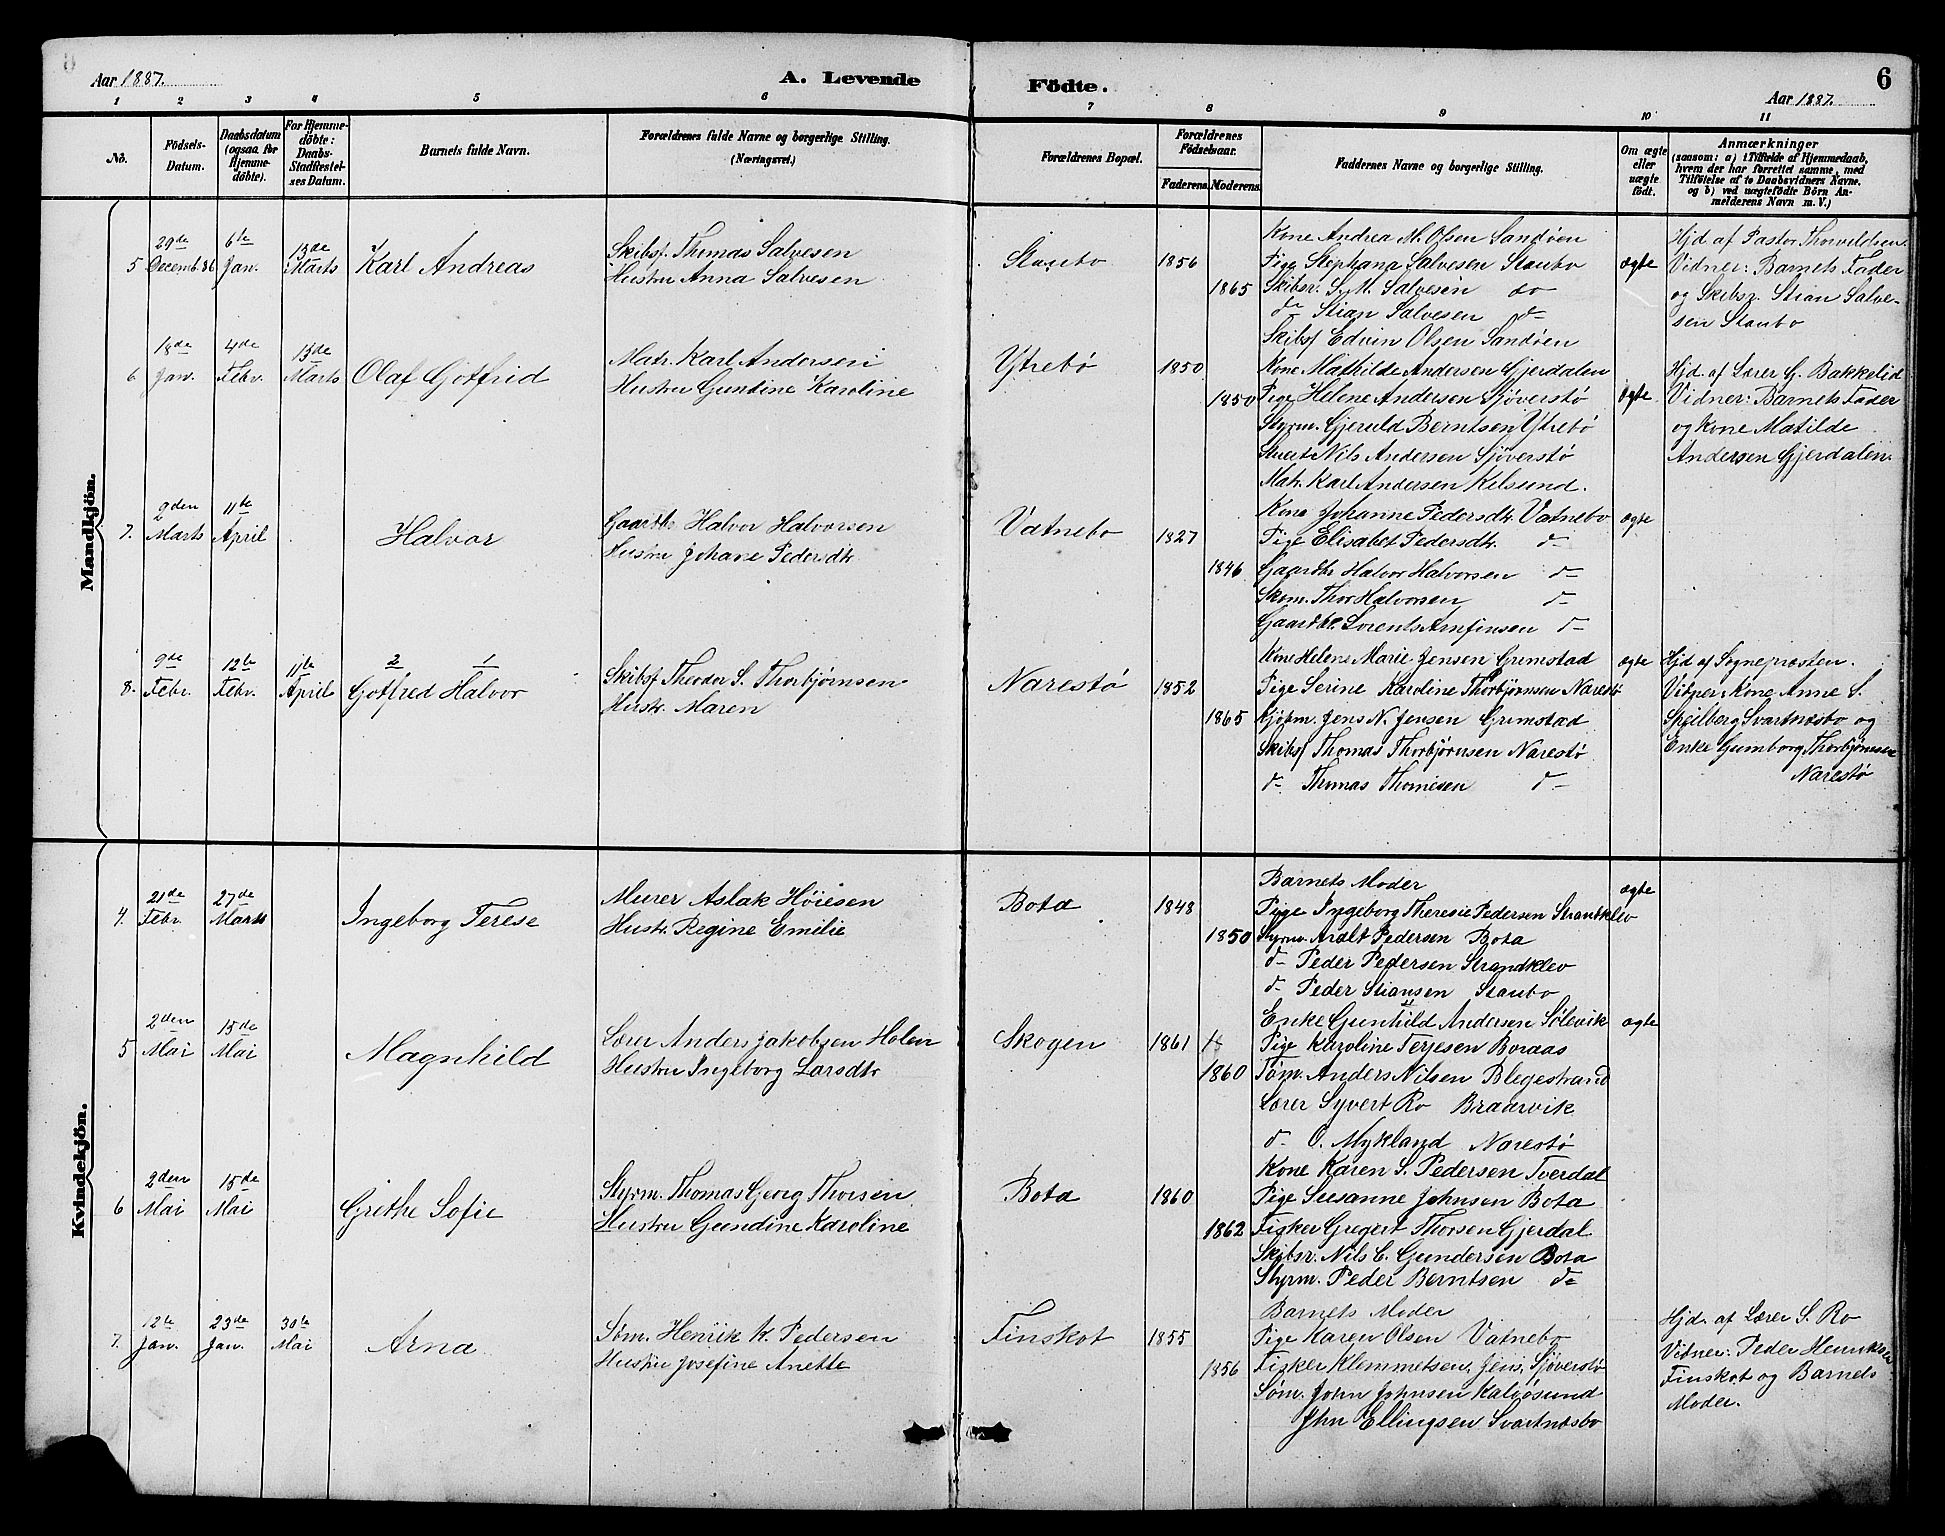 Aar 1887.
A. Levende Födte.
6
Aar 1887.
1 2 3 4 5 6 7 8 9 10 11
No.
Födsels-Datum.
Daabsdatum (ogsaa for Hjemmedöbte).
For Hjemmedöbte: Daabs-Stadfæstelses Datum.
Barnets fulde Navn.
Forældrenes fulde Navne og borgerlige Stilling. (Næringsvei.)
Forældrenes Bopæl.
Forældrenes Födselsaar.
Faderens.
Moderens.
Faddernes Navne og borgerlige Stilling.
Om ægte eller uægte födt.
Anmærkninger (saasom: a) i Tilfælde af Hjemmedaab, hvem der har forrettet samme, med Tilföielse af to Daabsvidners Navne, og b) ved uægtefödte Börn Anmelderens Navn m. V.)
Mandkjön.
5 29de Decemb. 86 6te Jan. 13de Marts Karl Andreas
Skibsf. Thomas Salvesen
Hustru Anna Salvesen
Staubo 1856 1865
Kone Andrea M. Olsen Sandøen
Pige Stephana Salvesen Staubo
Skibsr. S. M. Salvesen do
d- Stian Salvesen d-
Skibsf Edvin Olsen Sandøen
ægte
Hjd af Pastor Thorvildsen.
Vidner: Barnets Fader
og Skibsr. Stian Salve-
sen Staubo
6 18de Jan. 4de Febr. 13de Marts Olaf Gotfrid
Matr. Karl Andersen
Hustru Gundine Karoline
Ytrebø 1850 1850
Kone Mathilde Andersen Gjerdalen
Pige Helene Andersen Sjøverstø
Styrm. Gjeruld Berntsen Ytrebø
Stuert Nils Andersen Sjøverstø
Matr. Karl Andersen Kilsund.
ægte
Hjd. af Lærer G. Bakkelid
Vidner: Barnets Fader
og Kone Matilde
Andersen Gjerdalen.
7. 9den Marts 11te April Halvor
Gaardbr Halvor Halvorsen
Hustru Johane Pedersdtr
Vatnebo 1827 1846
Kone Johanne Pedersdtr. Vatnebo
Pige Elisabet Pedersdtr. d-
Gaardbr Halvor Halvorsen d-
Skom. Thor Halvorsen d-
Gaardbr. Lorents Arnfinsen d-
ægte
8. 9de Febr. 12te Febr. 11te April 2 1 Gotfred Halvor
Skibsf Theodor S. Thorbjørnsen
Hustr. Maren
Narestø 1852 1865
Kone Helene Marie Jensen Grimstad
Pige Serine Karoline Thorbjørnsen Narestø
Kjøpm. Jens N. Jensen Grimstad
Skibsf Thomas Thorbjørnsen Narestø
d- Thomas Thomesen d-
ægte
Hjd af Sognepræsten.
Vidner: Kone Anne S.
Speilberg Svartnæsbo og
Enke Gumborg Thorbjørnsen
Narestø
Kvindekjön.
4. 21de Febr. 27de Marts Ingeborg Terese
Murer Aslak Høiesen
Hustr. Regine Emilie
Bota 1848 1850
Barnets Moder
Pige Ingeborg Theresie Pedersen Strandklev
Styrm. Aralt Pedersen Bota
d- Peder Pedersen Strandklev
d- Peder Stiansen Staubo
ægte
5 2den Mai 15de Mai Magnhild
Lærer Anders Jakobsen Holen
Hustru Ingeborg Larsdtr
Skogen 1861 1860
Enke Gunhild Andersen Sølevik
Pige Karoline Terjesen Boraas
Tøm. Anders Nilsen Blegestrand
Lærer Syvert Ro Braarvik
d- O. Mykland Narestø
ægte
6 2den Mai 15de Mai Grethe Sofie
Styrm. Thomas Georg Thorsen
Hustru Gundine Karoline
Bota 1860 1862
Kone Karen S. Pedersen Tverdal
Pige Susanne Johnsen Bota
Fisker Gregert Thorsen Gjerdal
Skibsr. Nils C. Gundersen Bota
Styrm. Peder Berntsen d-
7. 12te Jan. 23de Jan. 30te Mai Arna
Søm. Henrik K. Pedersen
Hustru Josefine Anette
Finskot 1855 1856
Barnets Moder
Pige Karen Olsen Vatnebo
Fisker Klemmetsen, Jens, Sjøverstø
Søm. John Johnsen Kalvøsund
John Ellingsen Svartnæsbo
Hjd. af Lærer S. Ro
Vidner: Peder Henriksen
Finskot og Barnets
Moder.